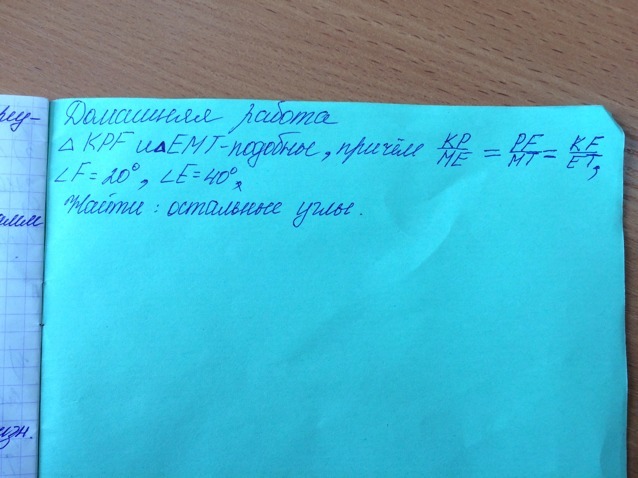 Домашняя работа
△ KPF и △ EMT - подобные, причём KP/ME = PF/MT = KF/ET,
∠F = 20°, ∠E = 40°,
Найти : остальные углы.